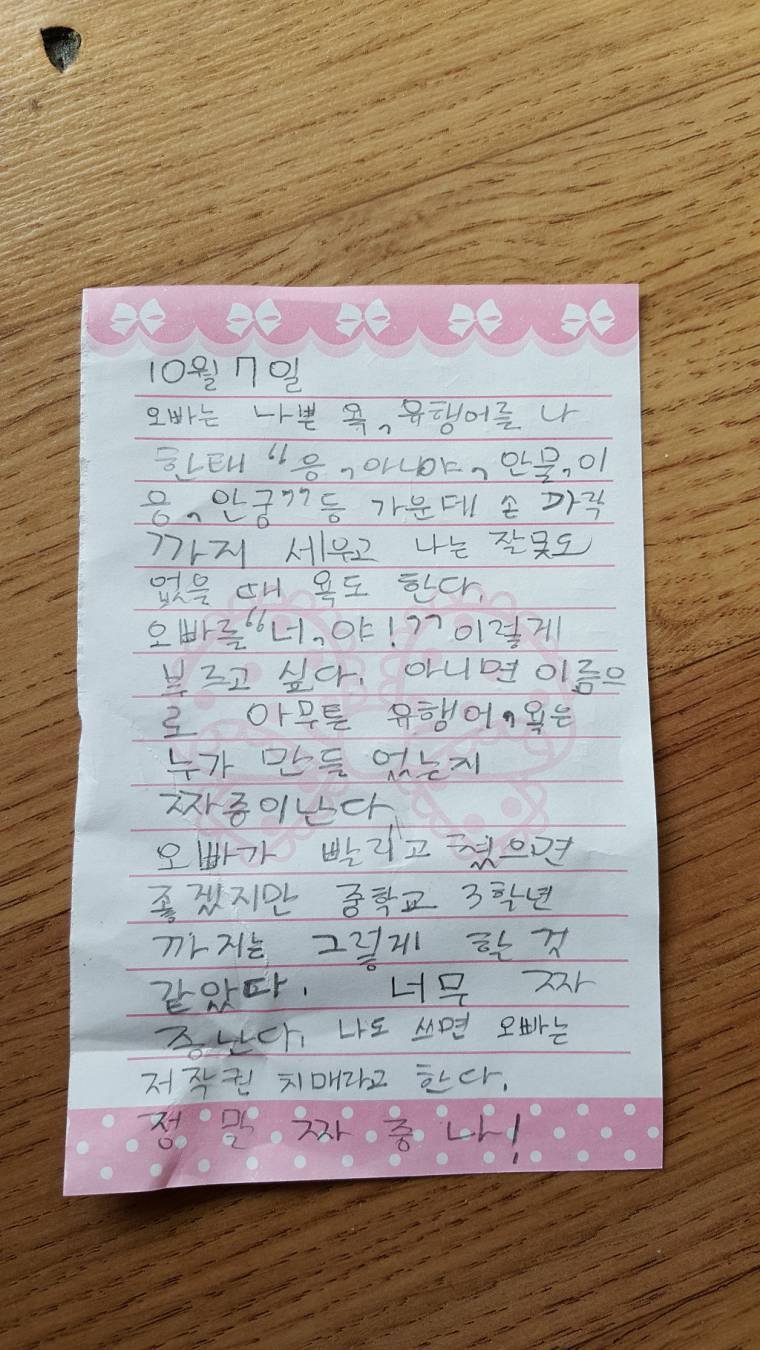 10월 7일
오빠는 나쁜 욕, 유행어를 나
한태 "응, 아니야, 안물, 이
응, 안궁" 등 가운데 손 까락
까지 세우고 나는 잘못도
없을 때 욕도 한다.
오빠를 "너, 야!" 이렇게
부르고 싶다. 아니면 이름으
로 아무튼 유행어, 욕은
누가 만들 었는지
짜증이난다
오빠가 빨리 고 쳤으면
좋겠지만 중학교 3학년
까지는 그렇게 할 것
같았따. 너무 짜
증난다. 나도 쓰면 오빠는
저작권 치매라고 한다.
정말 짜증나!